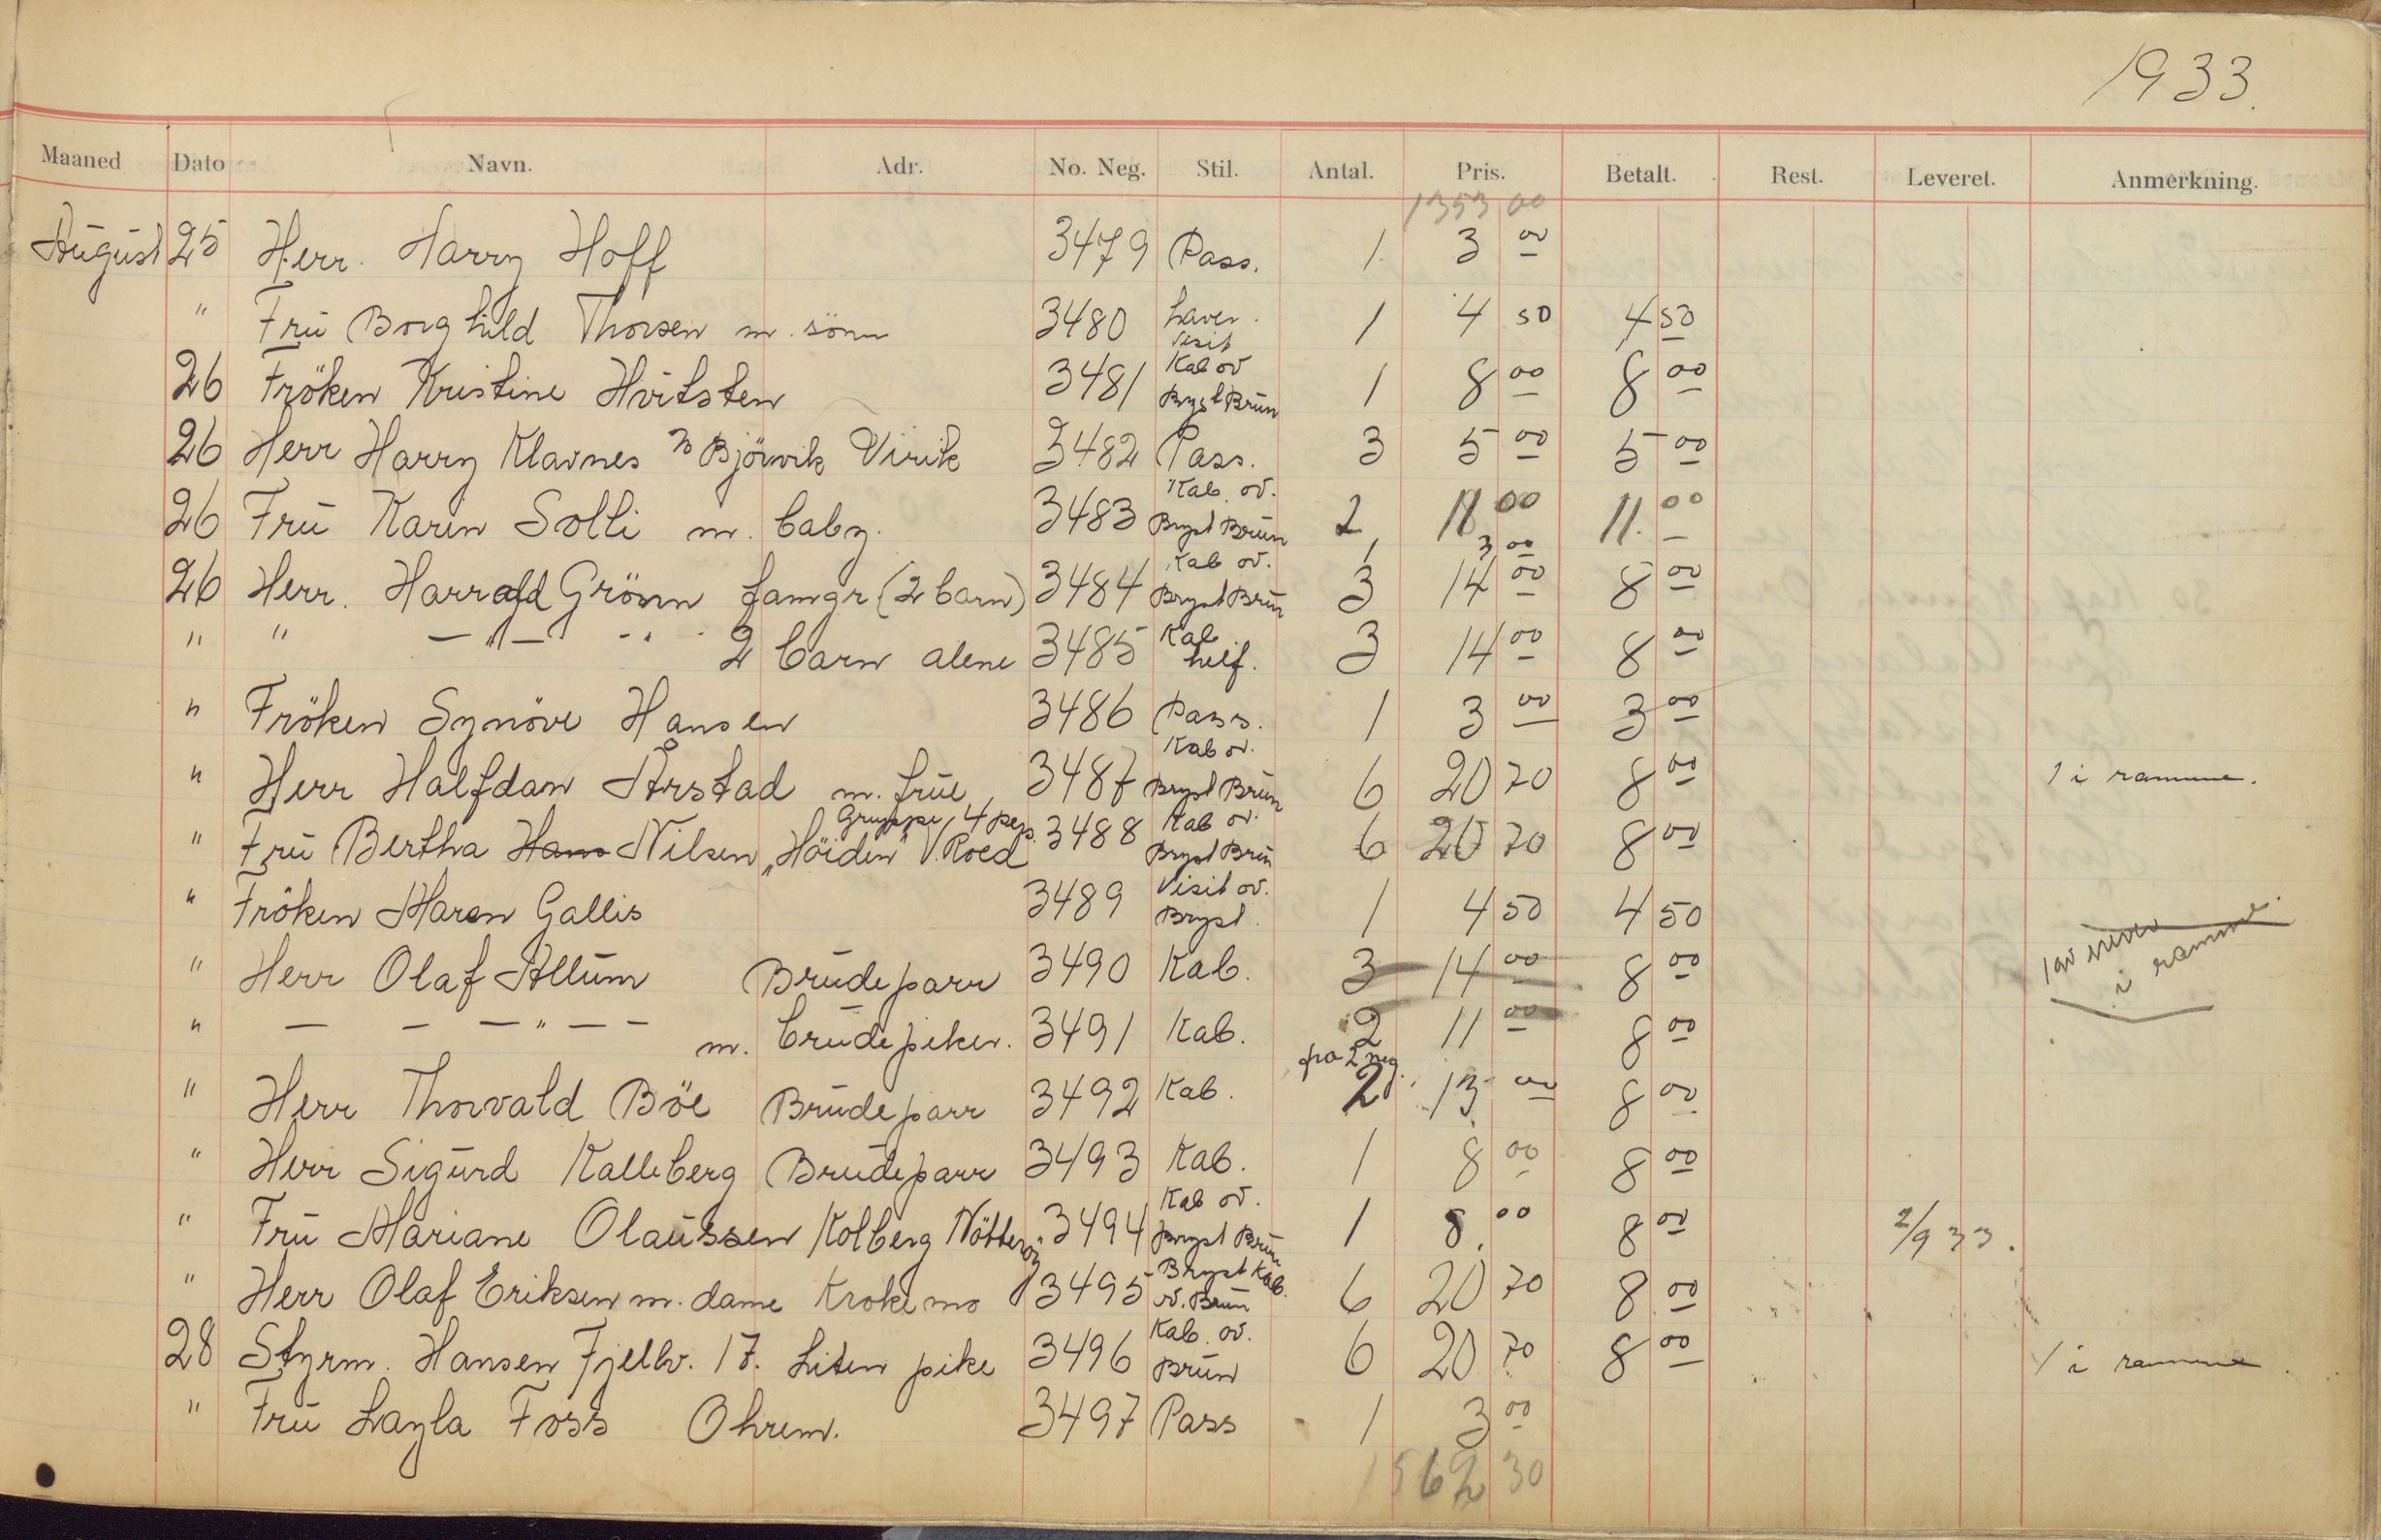 1933.
Maaned Dato Navn. Adr. No. Neg. Stil. Antal. Pris. Betalt. Rest. Leveret. Anmerkning.
1353 00
August 25 Herr. Harry Hoff 3479 Pass. 1 3 00
" Fru Borghild Thorsen m. sönn 3480 Laver. Visit 1 4 50 4 50
26 Fröken Kristine Hvitsten 3481 Kab ov Bryst Brun 1 8 00 8 00
26 Herr Harry Klavnes Bjönvik Virik 3482 Pass. 3 5 00 5 00
26 Fru Karin Solli m. baby. 3483 Kab. ov. Bryst Brun 2 11 00 11. 00
1 3 00
26 Herr. Harrald Grönn famgr (2 barn) 3484 Kab ov. Bryst Brun 3 14 00 8 00
" " — " — " 2 barn alene 3485 Kab helf. 3 14 00 8 00
" Fröken Synöve Hansen 3486 Pass. 1 3 00 3 00
" Herr Halfdan Årstad m. frue 3487 Kab ov. Bryst Brun 6 20 70 8 00 1 i ramme.
Gruppe 4 pers.
" Fru Bertha Hans Nilsen „Höiden" V. Roed 3488 Kab ov. Bryst Brun 6 20 70 8 00
" Fröken Maren Gallis 3489 Visit ov. Bryst. 1 4 50 4 50
" Herr Olaf Allum Brudeparr 3490 Kab. 3 14 00 8 00 1 av i ramme
" — — — " — — m. brudepiker. 3491 Kab. 2 11 00 8 00
fra 2 neg.
" Herr Thorvald Böe Brudeparr 3492 Kab. 2 13 00 8 00
" Herr Sigurd Kalleberg Brudeparr 3493 Kab. 1 8 00 8 00
" Fru Mariane Olaussen Kolberg Nötteröy 3494 Kab ov. Bryst Brun 1 8. 00 8 00 2/9 33.
" Herr Olaf Eriksen m. dame Krokemo 3495 Bryst Kab. ov. Brun 6 20 70 8 00
28 Styrm. Hansen Fjellv. 17. Liten pike 3496 Kab. ov. Brun 6 20 70 8 00 1 i ramme.
" Fru Layla Foss Ohrem. 3497 Pass 1 3 00
1562 30